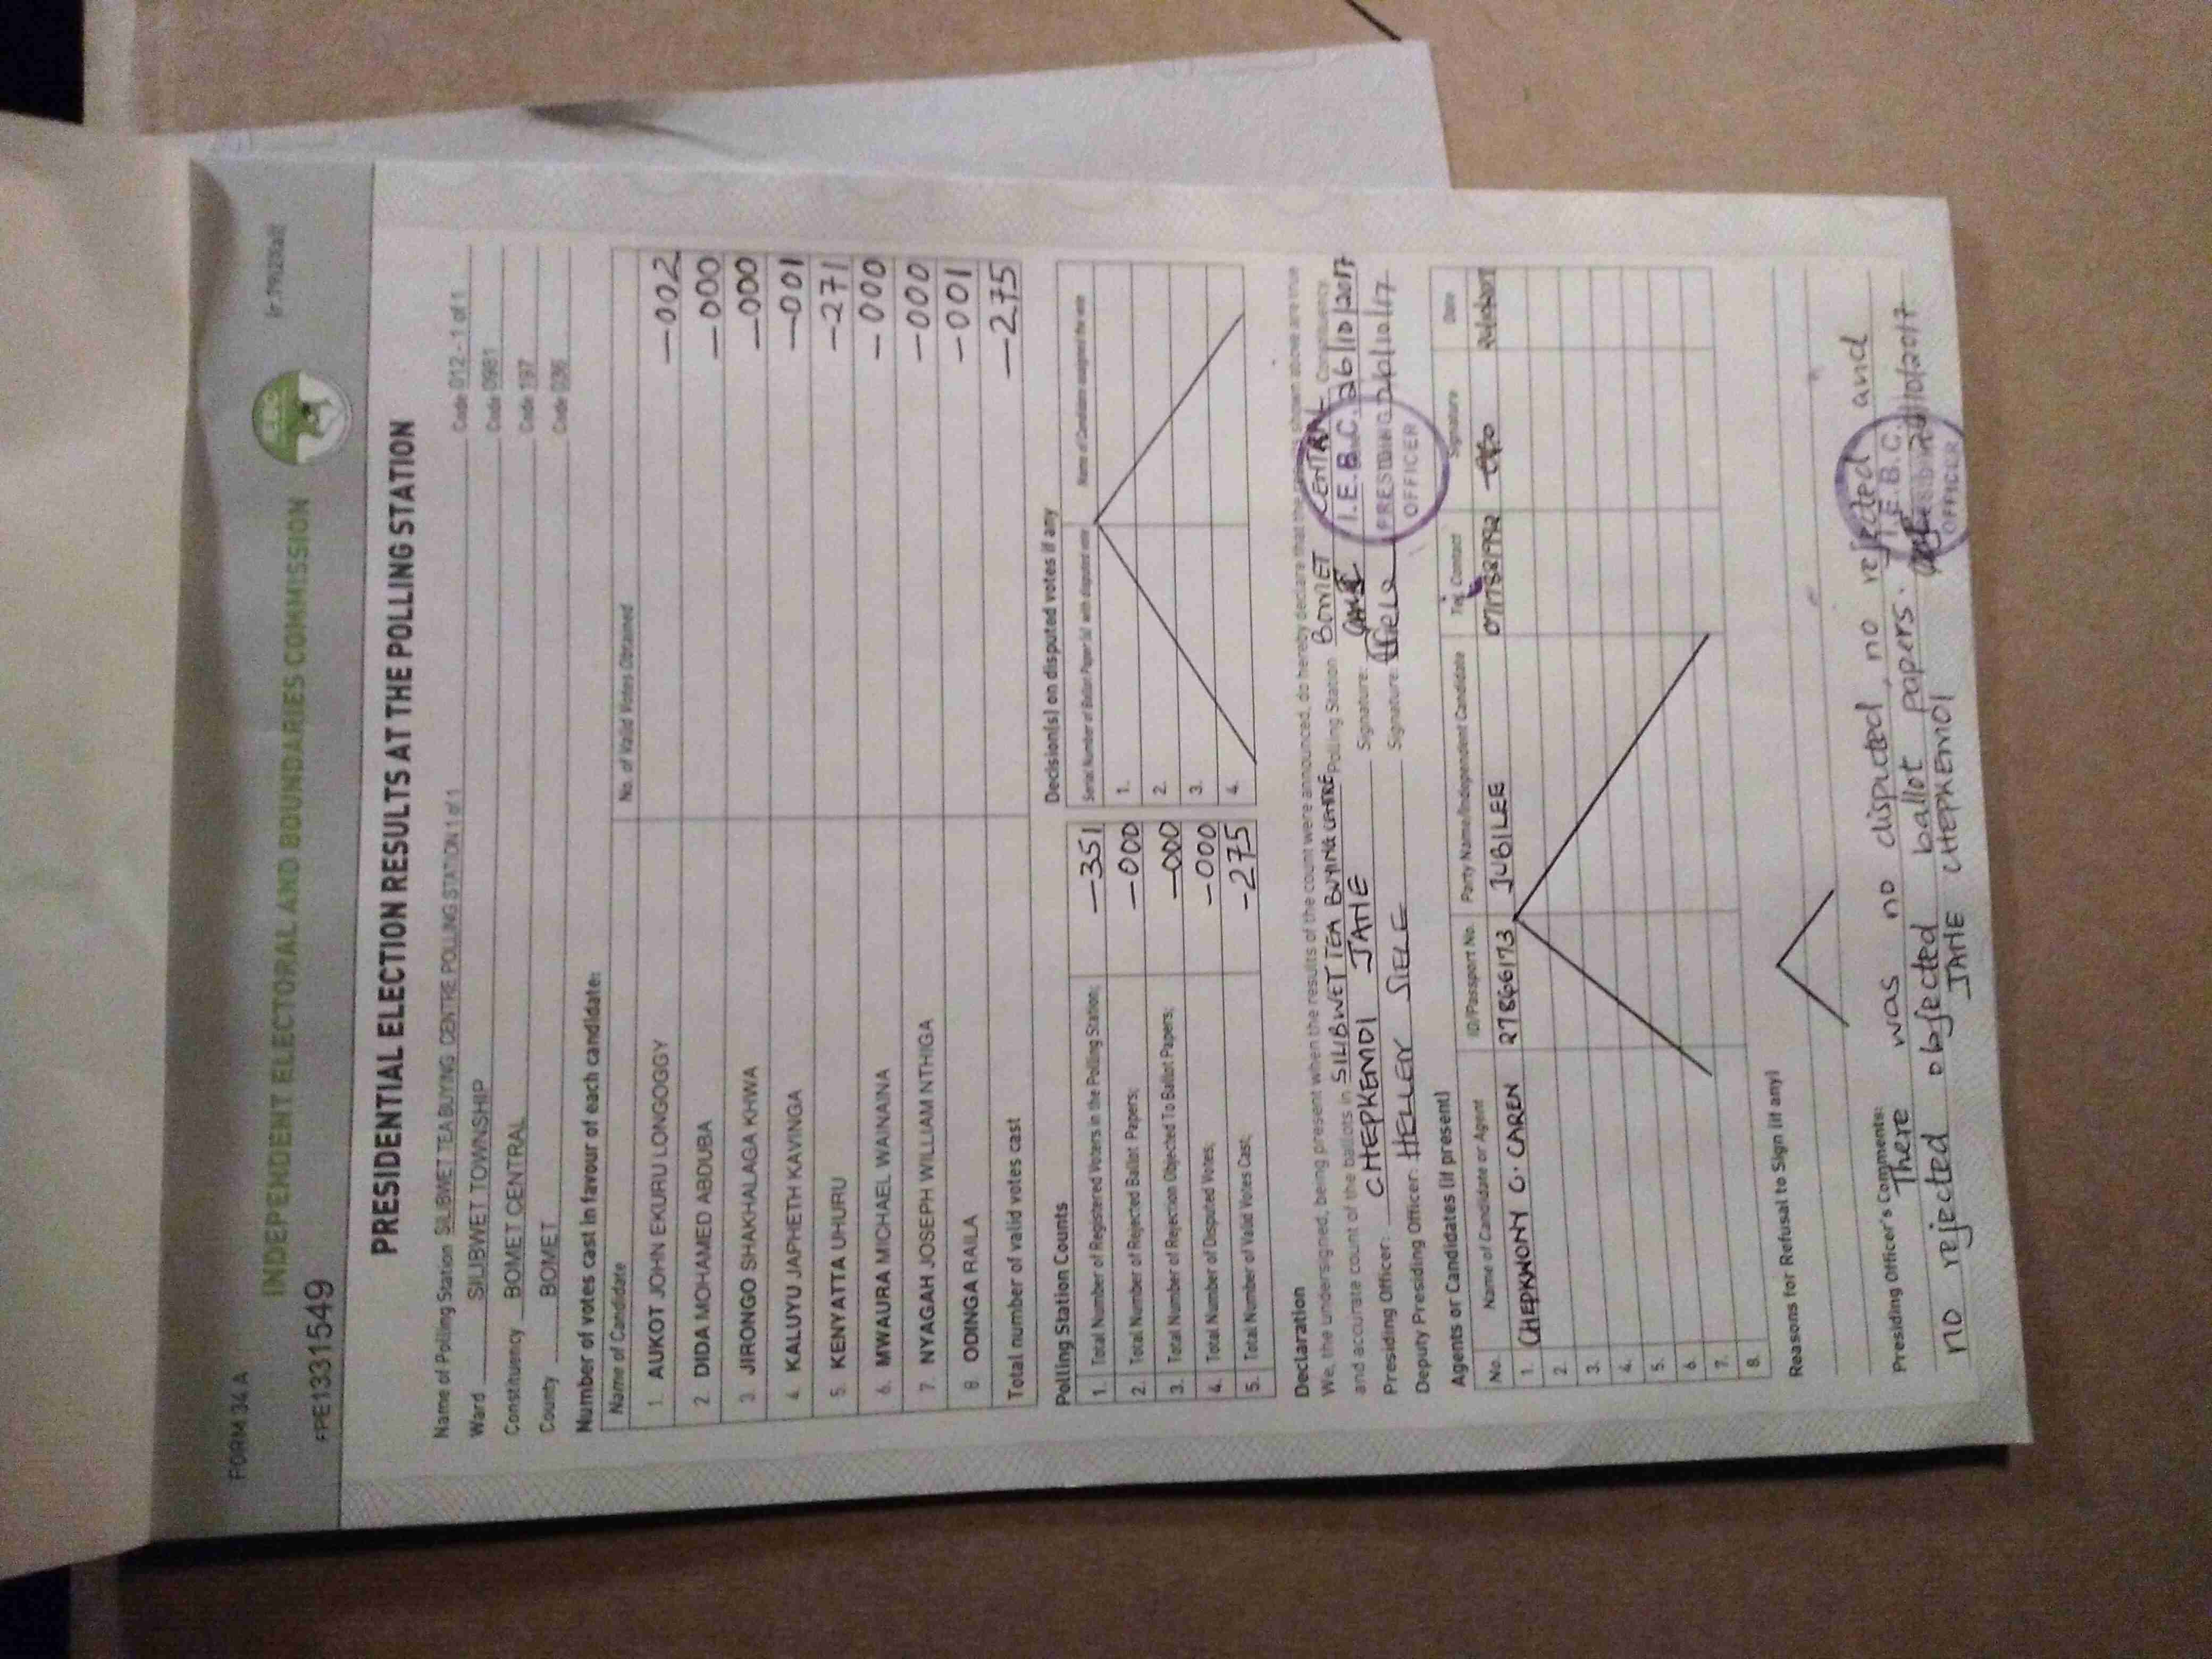 FORM 34 A
INDEPENDENT ELECTORAL AND BOUNDARIES COMMISSION
IEBC
FPE1331549
PRESIDENTIAL ELECTION RESULTS AT THE POLLING STATION
Name of Polling Station SILIBWET TEA BUYING CENTRE POLLING STATION 1 of 1 Code 012 - 1 of 1
Ward SILIBWET TOWNSHIP Code 0981
Constituency BOMET CENTRAL Code 197
County BOMET Code 036
Number of votes cast in favour of each candidate:
Name of Candidate No. of Valid Votes Obtained
1. AUKOT JOHN EKURU LONGOGGY —002
2. DIDA MOHAMED ABDUBA —000
3. JIRONGO SHAKHALAGA KHWA —000
4. KALUYU JAPHETH KAVINGA —001
5. KENYATTA UHURU —271
6. MWAURA MICHAEL WAINAINA —000
7. NYAGAH JOSEPH WILLIAM NTHIGA —000
8 ODINGA RAILA —001
Total number of valid votes cast —275
Polling Station Counts
1. Total Number of Registered Voters in the Polling Station; —351
2. Total Number of Rejected Ballot Papers; —000
3. Total Number of Rejection Objected To Ballot Papers; —000
4. Total Number of Disputed Votes; —000
5. Total Number of Valid Votes Cast; —275
Decision(s) on disputed votes if any
Serial Number of Ballot Paper (s) with disputed vote Name of Candidate assigned the vote
1.
2.
3.
4.
Declaration
We, the undersigned, being present when the results of the count were announced, do hereby declare that the results shown above are true
and accurate count of the ballots in SILIBWET TEA BUYING CENTRE Polling Station BOMET CENTRAL Constituency.
Presiding Officer: CHEPKEMOI JANE Signature: 26/10/2017
Deputy Presiding Officer: HELLEN SIELE Signature: 26/10/17
I.E.B.C.
PRESIDING
OFFICER
Agents or Candidates (if present)
No. Name of Candidate or Agent ID/Passport No. Party Name/Independent Candidate Tel. Contact Signature Date
1. CHEPKWONY C. CAREN 27866173 JUBILEE
2.
3.
4.
5.
6.
7.
8.
Reasons for Refusal to Sign (if any)
Presiding Officer's Comments:
There was no disputed, no rejected and
no rejected objected ballot papers. 26/10/2017
JANE CHEPKEMOI
I.E.B.C.
OFFICER